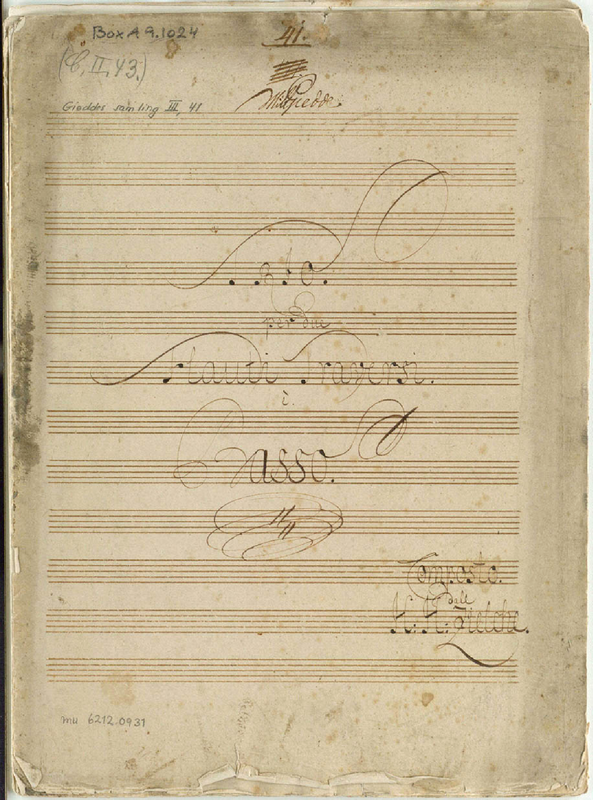 Box A 9.1024
41.
(C, II, 43.)
WHRGiedde.
Gieddes samling III, 41
Trio.
per due
Flauti Traversi.
è.
Basso.
Composto.
dall
H. H. Zielche.
mu 6212.0931